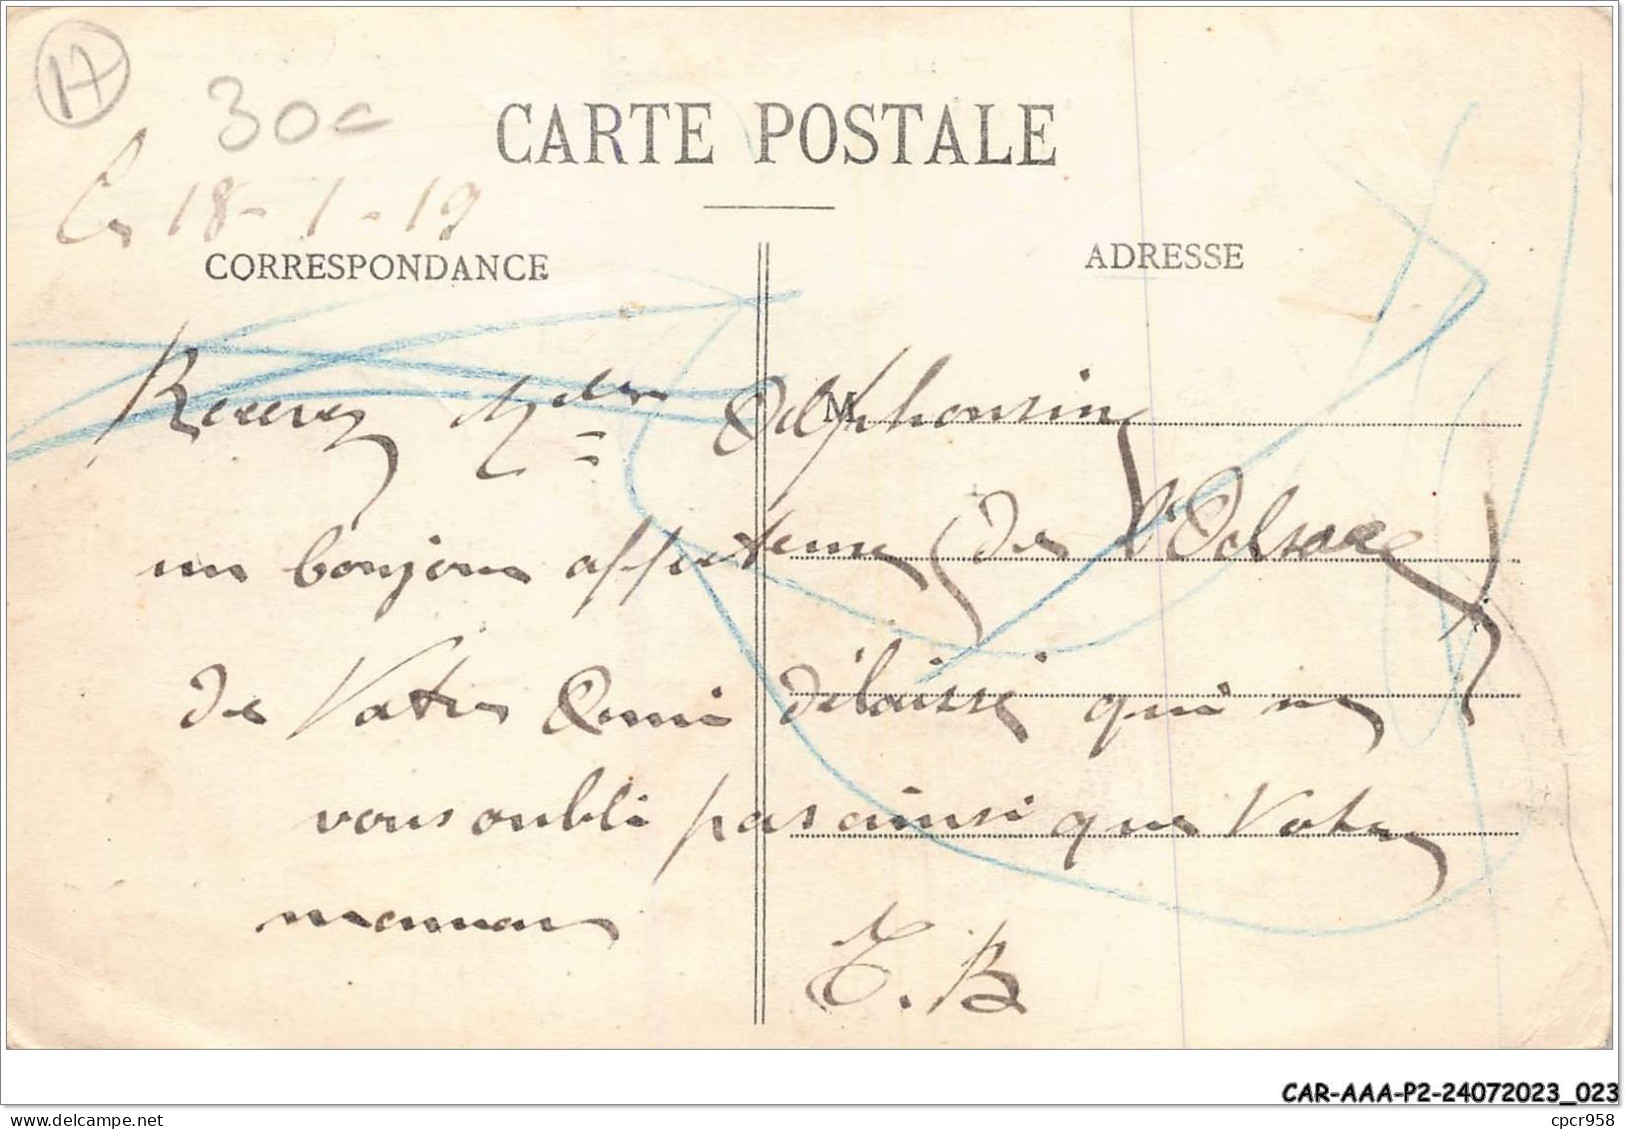 H
30c
Le 18-1-19
CARTE POSTALE
CORRESPONDANCE
ADRESSE
M
Recevez Mlle Alphonsine
un bonjour affectueux (de l'Alsace)
de Votre Ami délaissé qui ne
vous oubli pas ainsi que Votre
maman
T.B
CAR-AAA-P2-24072023_023
cpcr958